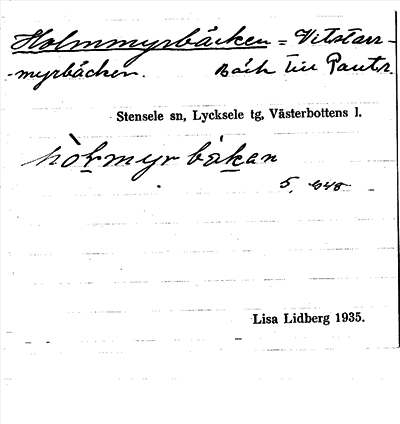 Holmmyrbäcken = Vitstarr-
-myrbäcken. Bäck till Pauträ.
Stensele sn, Lycksele tg, Västerbottens l.
hòlmyr bäkan
5,
Lisa Lidberg 1935.